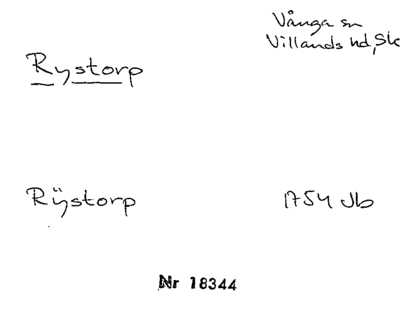 Vånga sn
Villands hd, Sk
Rystorp
Rÿstorp 1754 Jb
Nr 18344